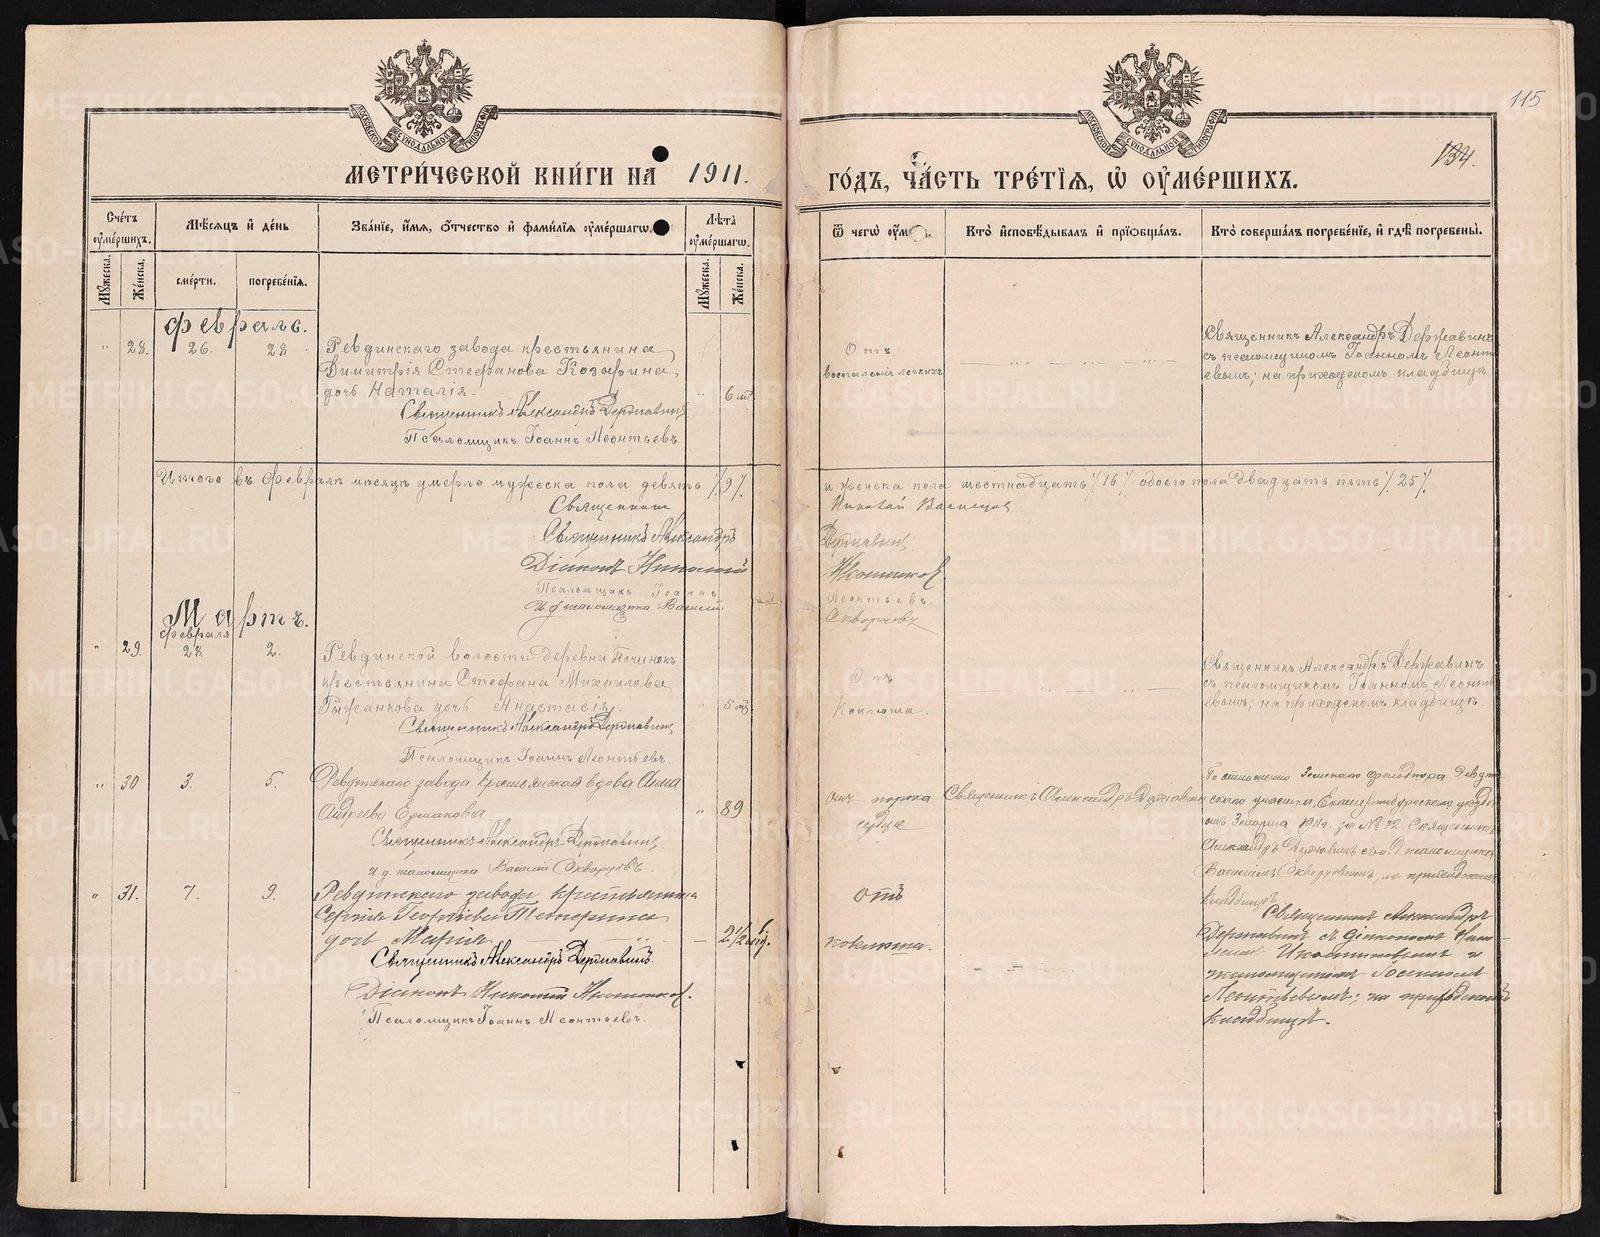 115
134.
МЕТРИ́ЧЕСКОЙ КНИ́ГИ НА 1911. ГО́ДЪ, ЧА́СТЬ ТРЕ́ТІѦ, Ѡ҆ ОУ҆МЕ́РШИХЪ.
Сче́тъ оу҆ме́ршихъ.
Мѣ́сѧцъ и҆ де́нь
Зва́нїе, и҆́мѧ, ѻ҆́тчество и҆ фами́лїѧ оу҆ме́ршагѡ.
Лѣ́та оу҆ме́ршагѡ.
Ѿ чегѡ̀ оу҆м
Кто̀ и҆сповѣ́дывалъ и҆ прїѡбща́лъ.
Кто̀ соверша́лъ погребе́нїе, и҆ гдѣ̀ погребены̀.
Мꙋ́жеска.
Же́нска.
сме́рти.
погребе́нїѧ.
Мꙋ́жеска.
Же́нска.
Февраль.
" 28. 26. 28
Ревдинскаго завода крестьянина
Димитрія Стефанова Козырина
дочь Наталія.
" 6 м.
Священникъ Александръ Державинъ
Псаломщикъ Іоаннъ Леонтьевъ.
Отъ
воспаленія легкихъ
Священникъ Александръ Державинъ
съ псаломщикомъ Іоанномъ Леонть
евымъ; на приходскомъ кладбищѣ.
Итого въ Февралѣ мѣсяцѣ умерло мужеска пола девять /9/. и женска пола шестнадцать /16/ обоего пола двадцать пять /25/.
Священникъ Николай
Священникъ Александръ Державинъ
Діаконъ Николай
Псаломщикъ Іоаннъ Леонтьевъ.
И. д. псаломщика Василій Скворцовъ
Мартъ.
Февраля
" 29. 28. 2.
Ревдинской волости деревни Починокъ
крестьянина Стефана Михаилова
дочь Анастасія.
" 5 м.
Священникъ Александръ Державинъ
Псаломщикъ Іоаннъ Леонтьевъ.
Отъ
Коклюша.
Священникъ Александръ Державинъ
съ псаломщикомъ Іоанномъ Леонть
евымъ; на приходскомъ кладбищѣ.
" 30 3. 5.
Ревдинскаго завода крестьянская вдова Анна
Андреева Ермакова
" 89
Священникъ Александръ Державинъ
И. д. псаломщика Василій Скворцовъ.
отъ порока
сердца
Священникъ Александръ Державинъ
По отношенію Земскаго фельдшера Ревдин
скаго участка, Екатеринбургскаго уѣзда
отъ 3 марта 1911 г. за № 72. Священникъ
Александръ Державинъ съ и. д. псаломщика
Василіемъ Скворцовымъ, на приходскомъ
кладбищѣ
" 31. 7. 9.
Ревдинскаго завода крестьянина
Сергія Георгіева
дочь Марія.
— 2 1/2 мѣс.
Священникъ Александръ Державинъ.
Діаконъ Николай
Псаломщикъ Іоаннъ Леонтьевъ.
отъ
коклюша.
Священникъ Александръ
Державинъ съ діакономъ Нико
лаемъ и
псаломщикомъ Іоанномъ
Леонтьевымъ; на приходскомъ
кладбищѣ.